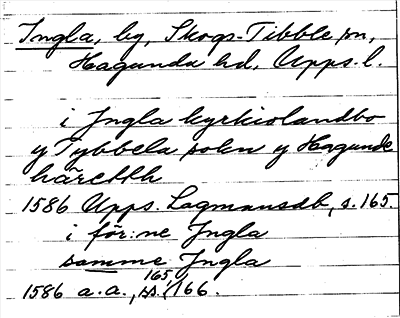 Ingla, by, Skogs-Tibble sn,
Hagunda hd, Upps. l.
i Ingla kyrkiolandbo
y Tybbela sokn y Hagunde
häredth
1586 Upps. Lagmansdb, s. 165.
i för:ne Ingla
samme Ingla
1586 a.a., ss. 165, 166.